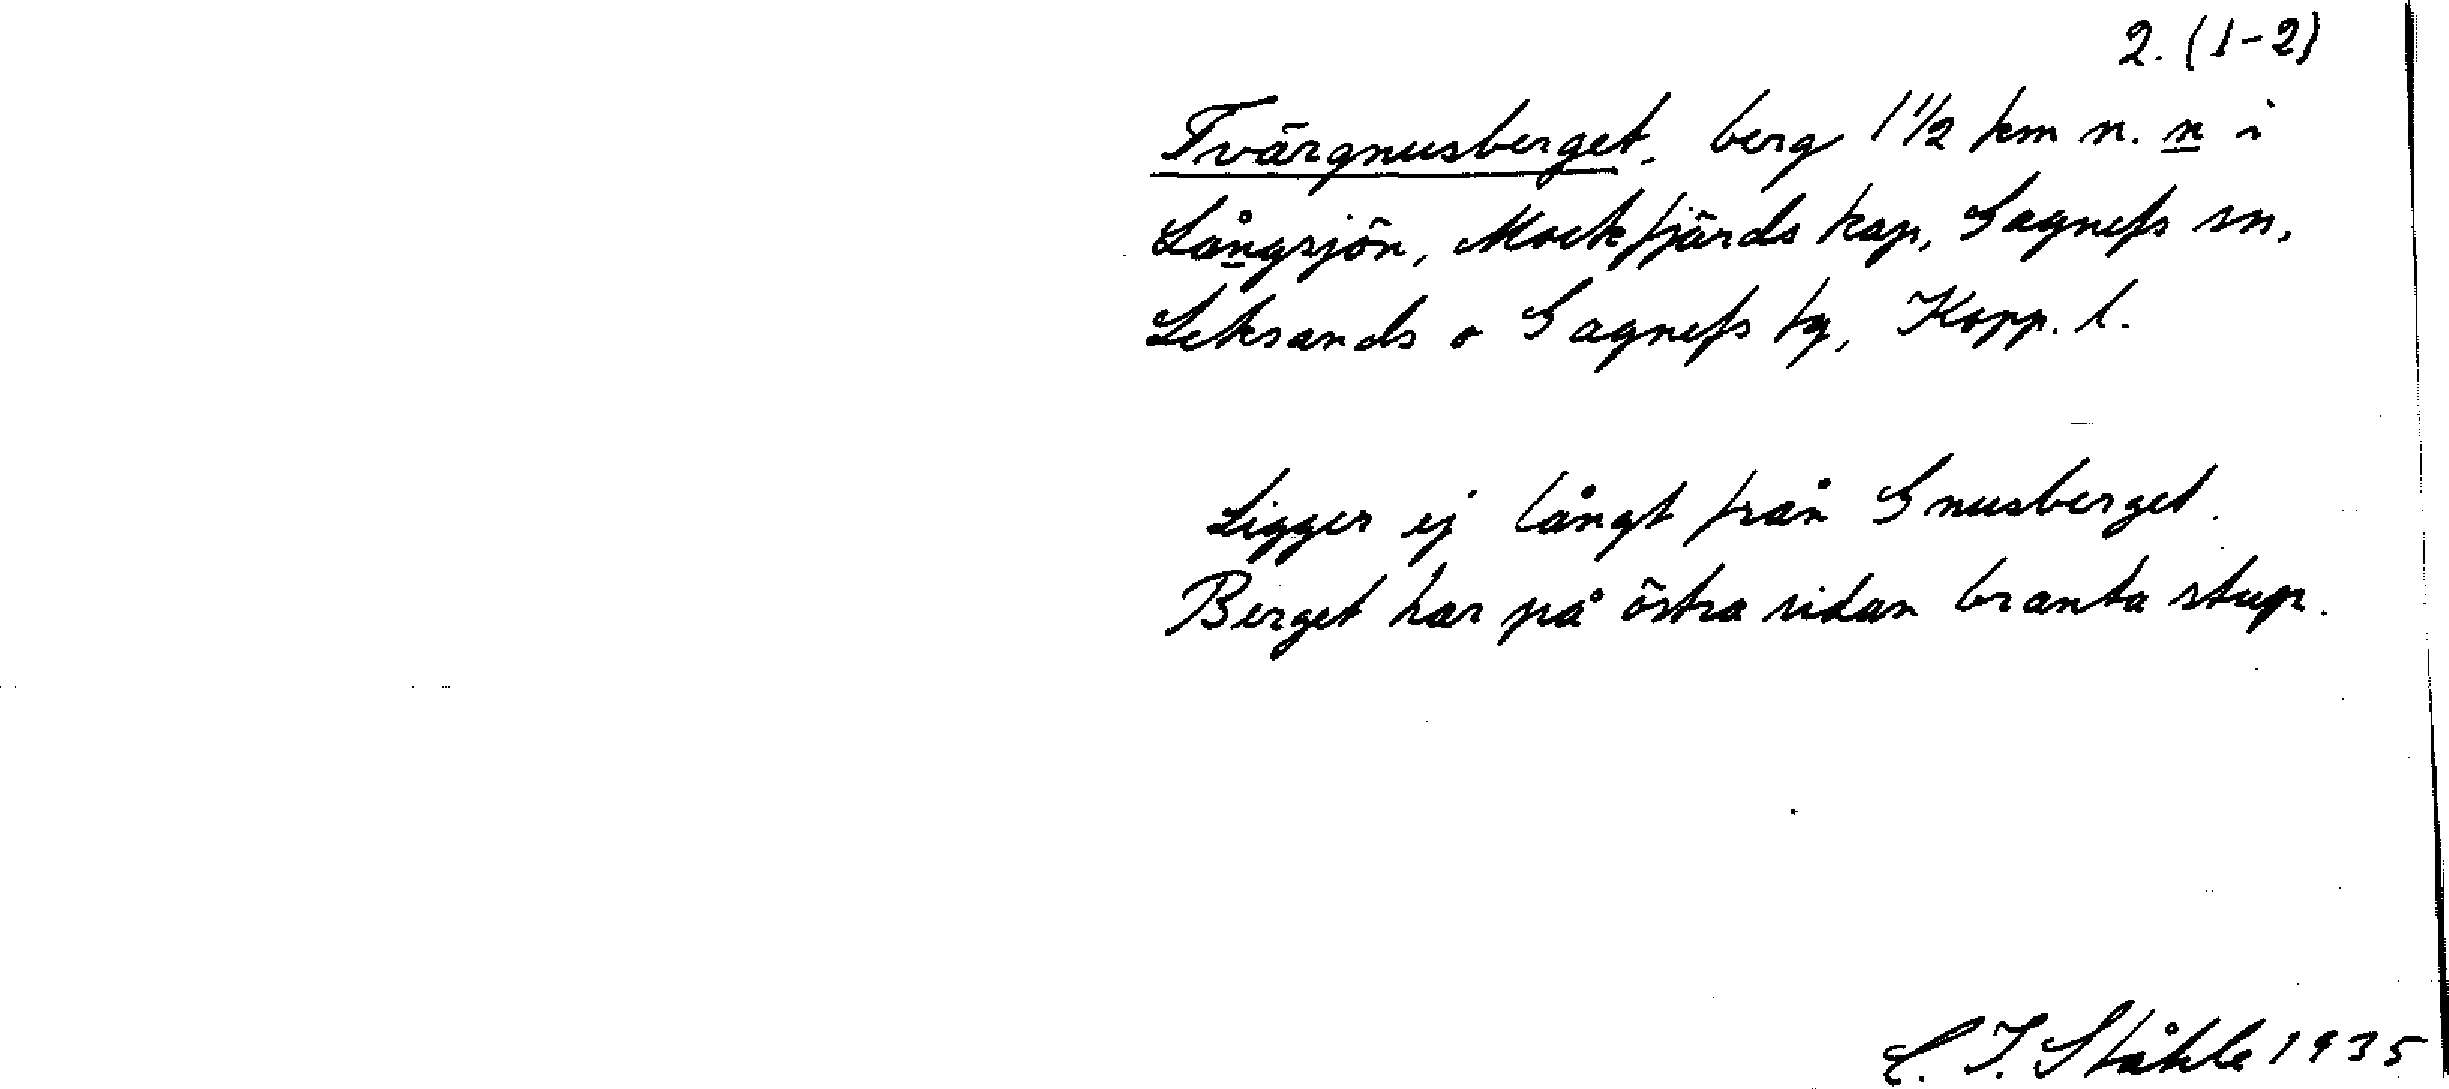 2. (1-2)
Tvärgnusberget, berg 1 1/2 km n. n i
Långsjön, Mockfjärds kap, Gagnefs sn,
Leksands o Gagnefs tg, Kopp. l.
Ligger ej långt från Gnusberget.
Berget har på östra sidan branta stup.
C. I. Ståhle 1935